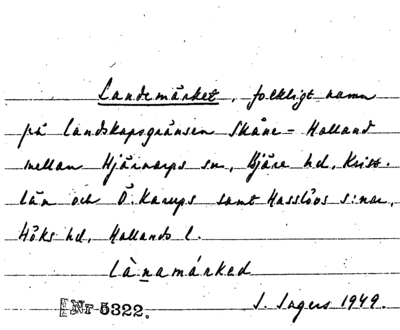 Landemärket, folkligt namn
på landskapsgränsen Skåne - Halland
mellan Hjärnarps sn, Bjäre hd, Krist.
län och Ö. Karups samt Hasslövs s:nar,
Höks hd, Hallands l.
lànamárked
Nr 5322.
I. Ingers 1949.